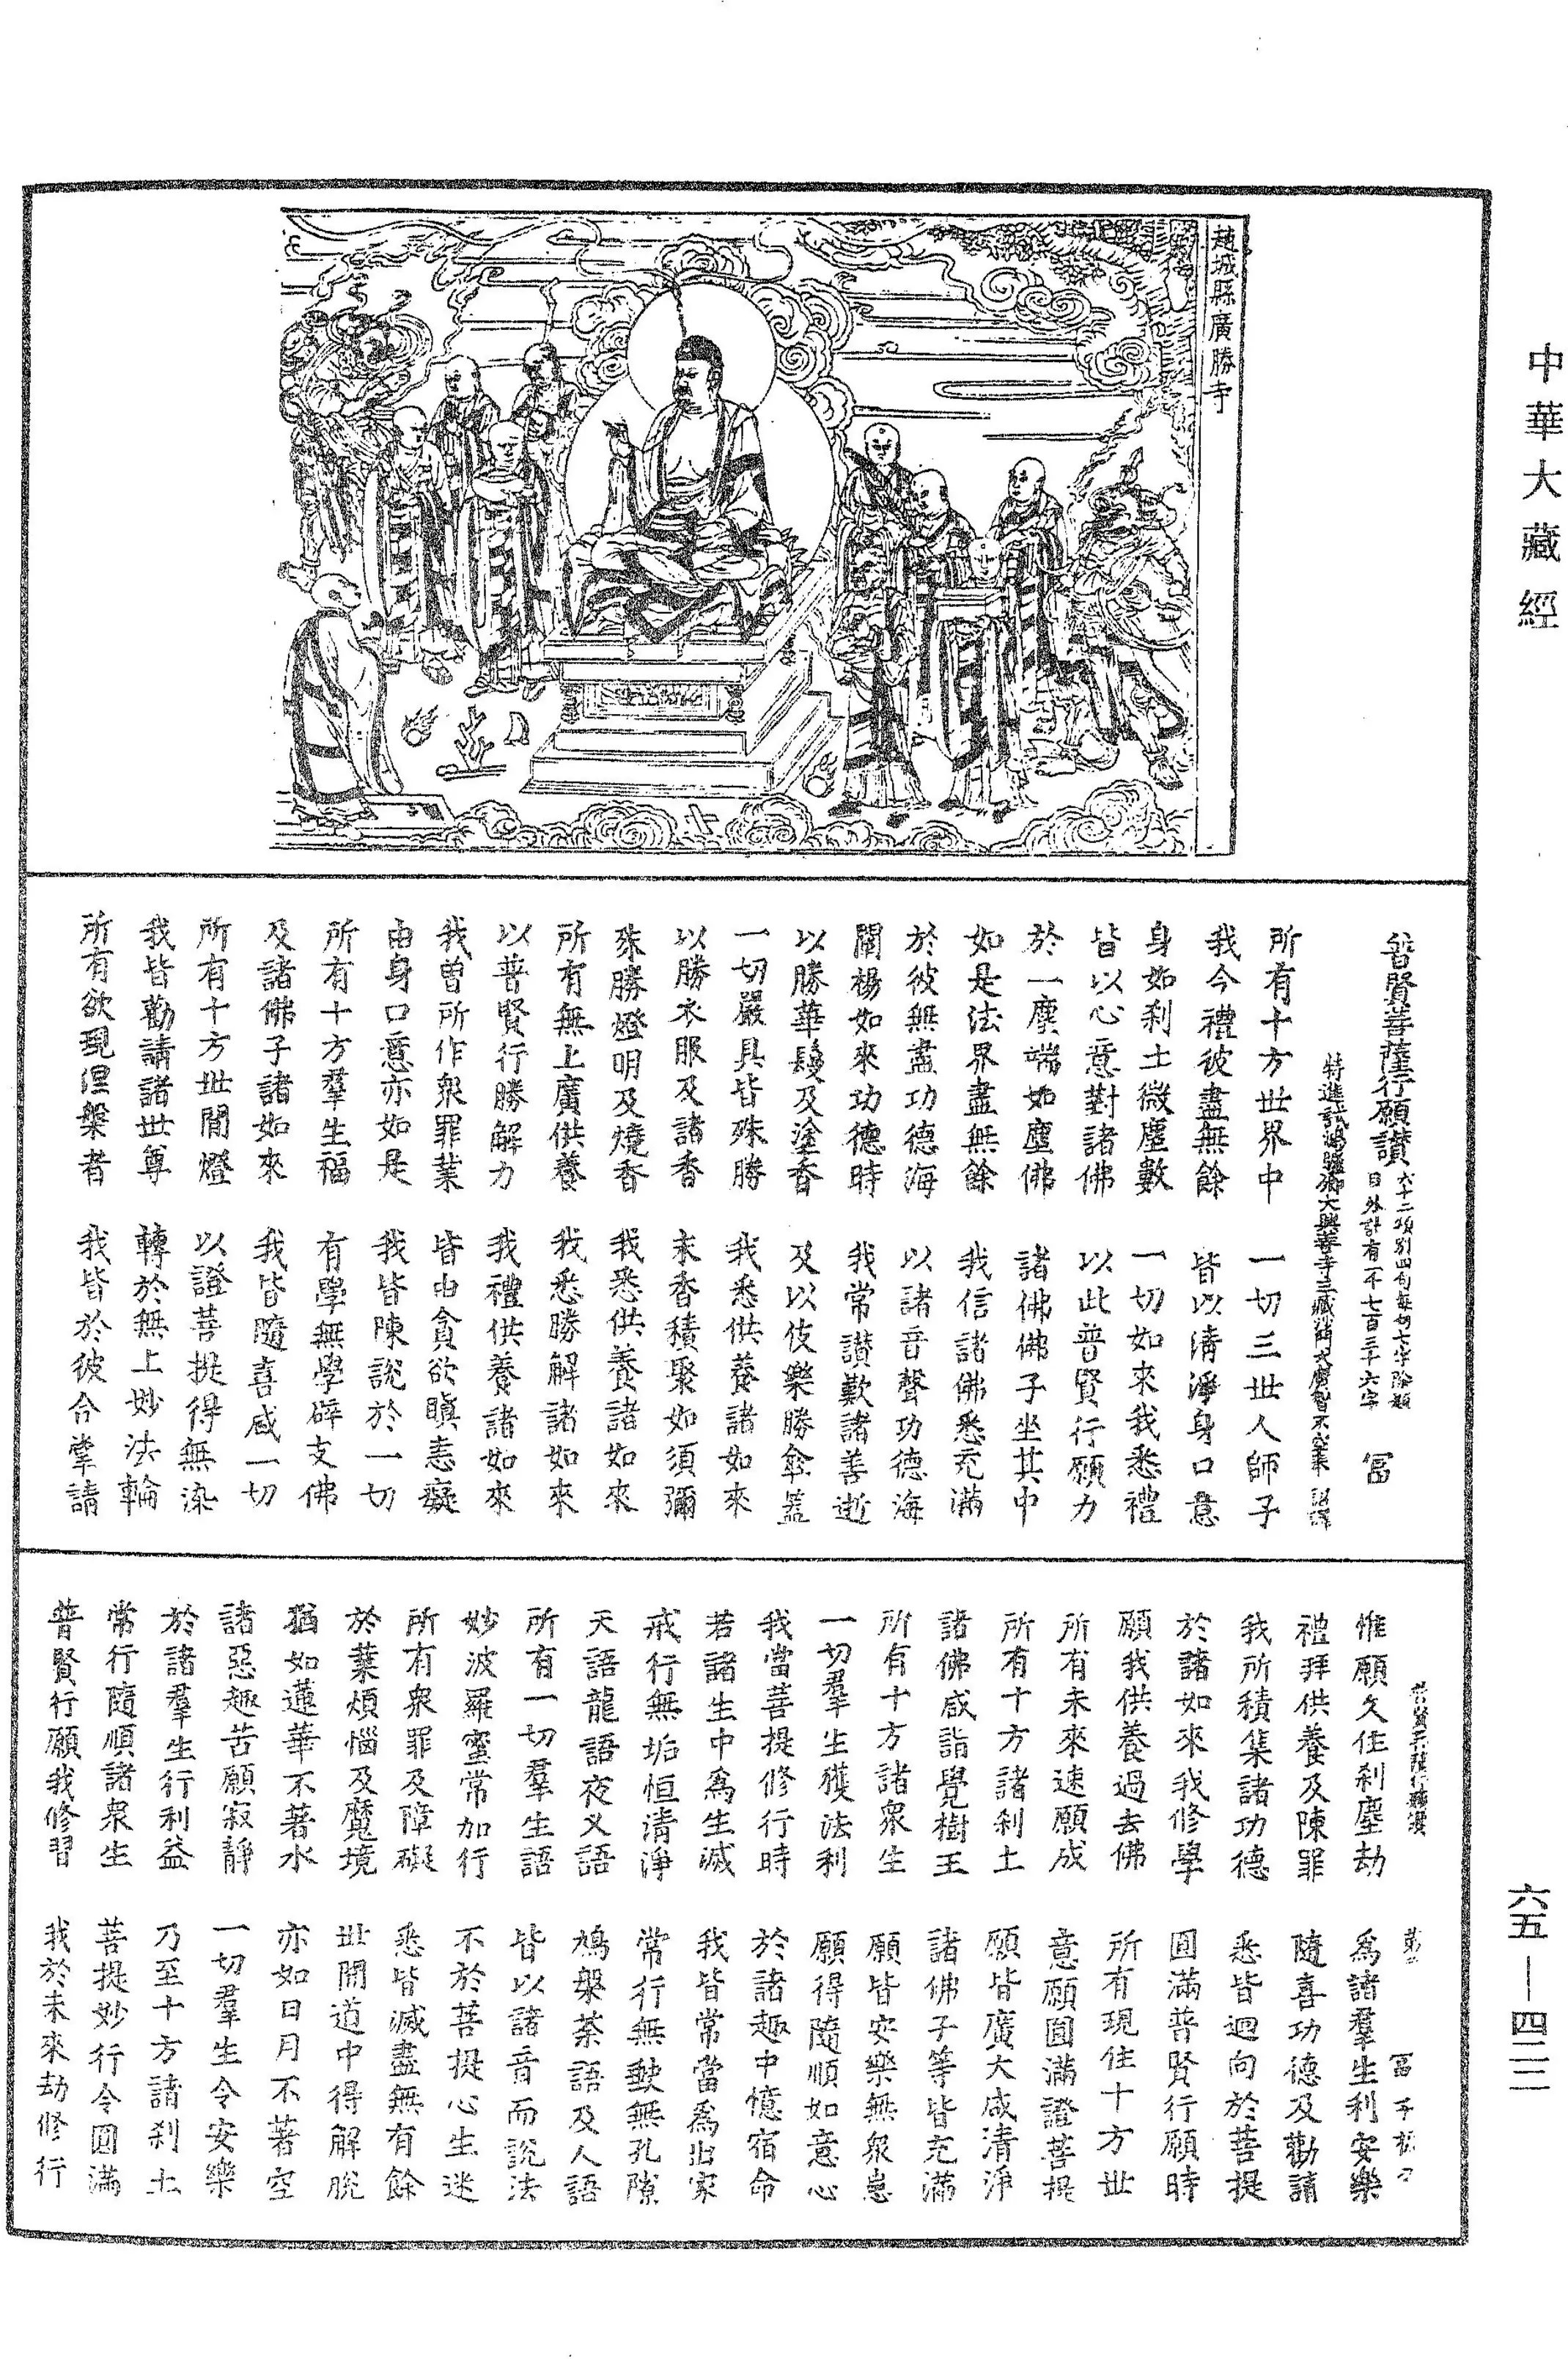 中華大藏經
六五—四二二
趙城縣廣勝寺
普賢菩薩行願讚
六十二頌別四句每句七字除題
目外計有一千七百三十六字
富
特進試鴻臚卿大興善寺三藏沙門大廣智不空奉 詔譯
所有十方世界中 一切三世人師子
我今禮彼盡無餘 皆以清淨身口意
身如刹土微塵數 一切如來我悉禮
皆以心意對諸佛 以此普賢行願力
於一塵端如塵佛 諸佛佛子坐其中
如是法界盡無餘 我信諸佛悉充滿
於彼無盡功德海 以諸音聲功德海
闡楊如來功德時 我常讃歎諸善逝
以勝華鬘及塗香 及以伎樂勝傘蓋
一切嚴具皆殊勝 我悉供養諸如來
以勝衣服及諸香 末香積聚如須彌
殊勝燈明及燒香 我悉供養諸如來
所有無上廣供養 我悉勝解諸如來
以普賢行勝解力 我禮供養諸如來
我曾所作衆罪業 皆由貪欲瞋恚癡
由身口意亦如是 我皆陳說於一切
所有十方羣生福 有學無學辟支佛
及諸佛子諸如來 我皆隨喜咸一切
所有十方世間燈 以證菩提得無染
我皆勸請諸世尊 轉於無上妙法輪
所有欲現涅槃者 我皆於彼合掌請
普賢菩薩行願讚 第二 富字
惟願久住刹塵劫 爲諸羣生利安樂
禮拜供養及陳罪 隨喜功德及勸請
我所積集諸功德 悉皆迴向於菩提
於諸如來我修學 圓滿普賢行願時
願我供養過去佛 所有現住十方世
所有未來速願成 意願圓滿證菩提
所有十方諸刹土 願皆廣大咸清淨
諸佛咸詣覺樹王 諸佛子等皆充滿
所有十方諸衆生 願皆安樂無衆患
一切羣生獲法利 願得隨順如意心
我當菩提修行時 於諸趣中憶宿命
若諸生中爲生滅 我皆常當爲出家
戒行無垢恒清淨 常行無缺無孔隙
天語龍語夜叉語 鳩槃荼語及人語
所有一切羣生語 皆以諸音而說法
妙波羅蜜常加行 不於菩提心生迷
所有衆罪及障礙 悉皆滅盡無有餘
於業煩惱及魔境 世間道中得解脫
猶如蓮華不著水 亦如日月不著空
諸惡趣苦願寂靜 一切羣生令安樂
於諸羣生行利益 乃至十方諸刹土
常行隨順諸衆生 菩提妙行令圓滿
普賢行願我修習 我於未來劫修行